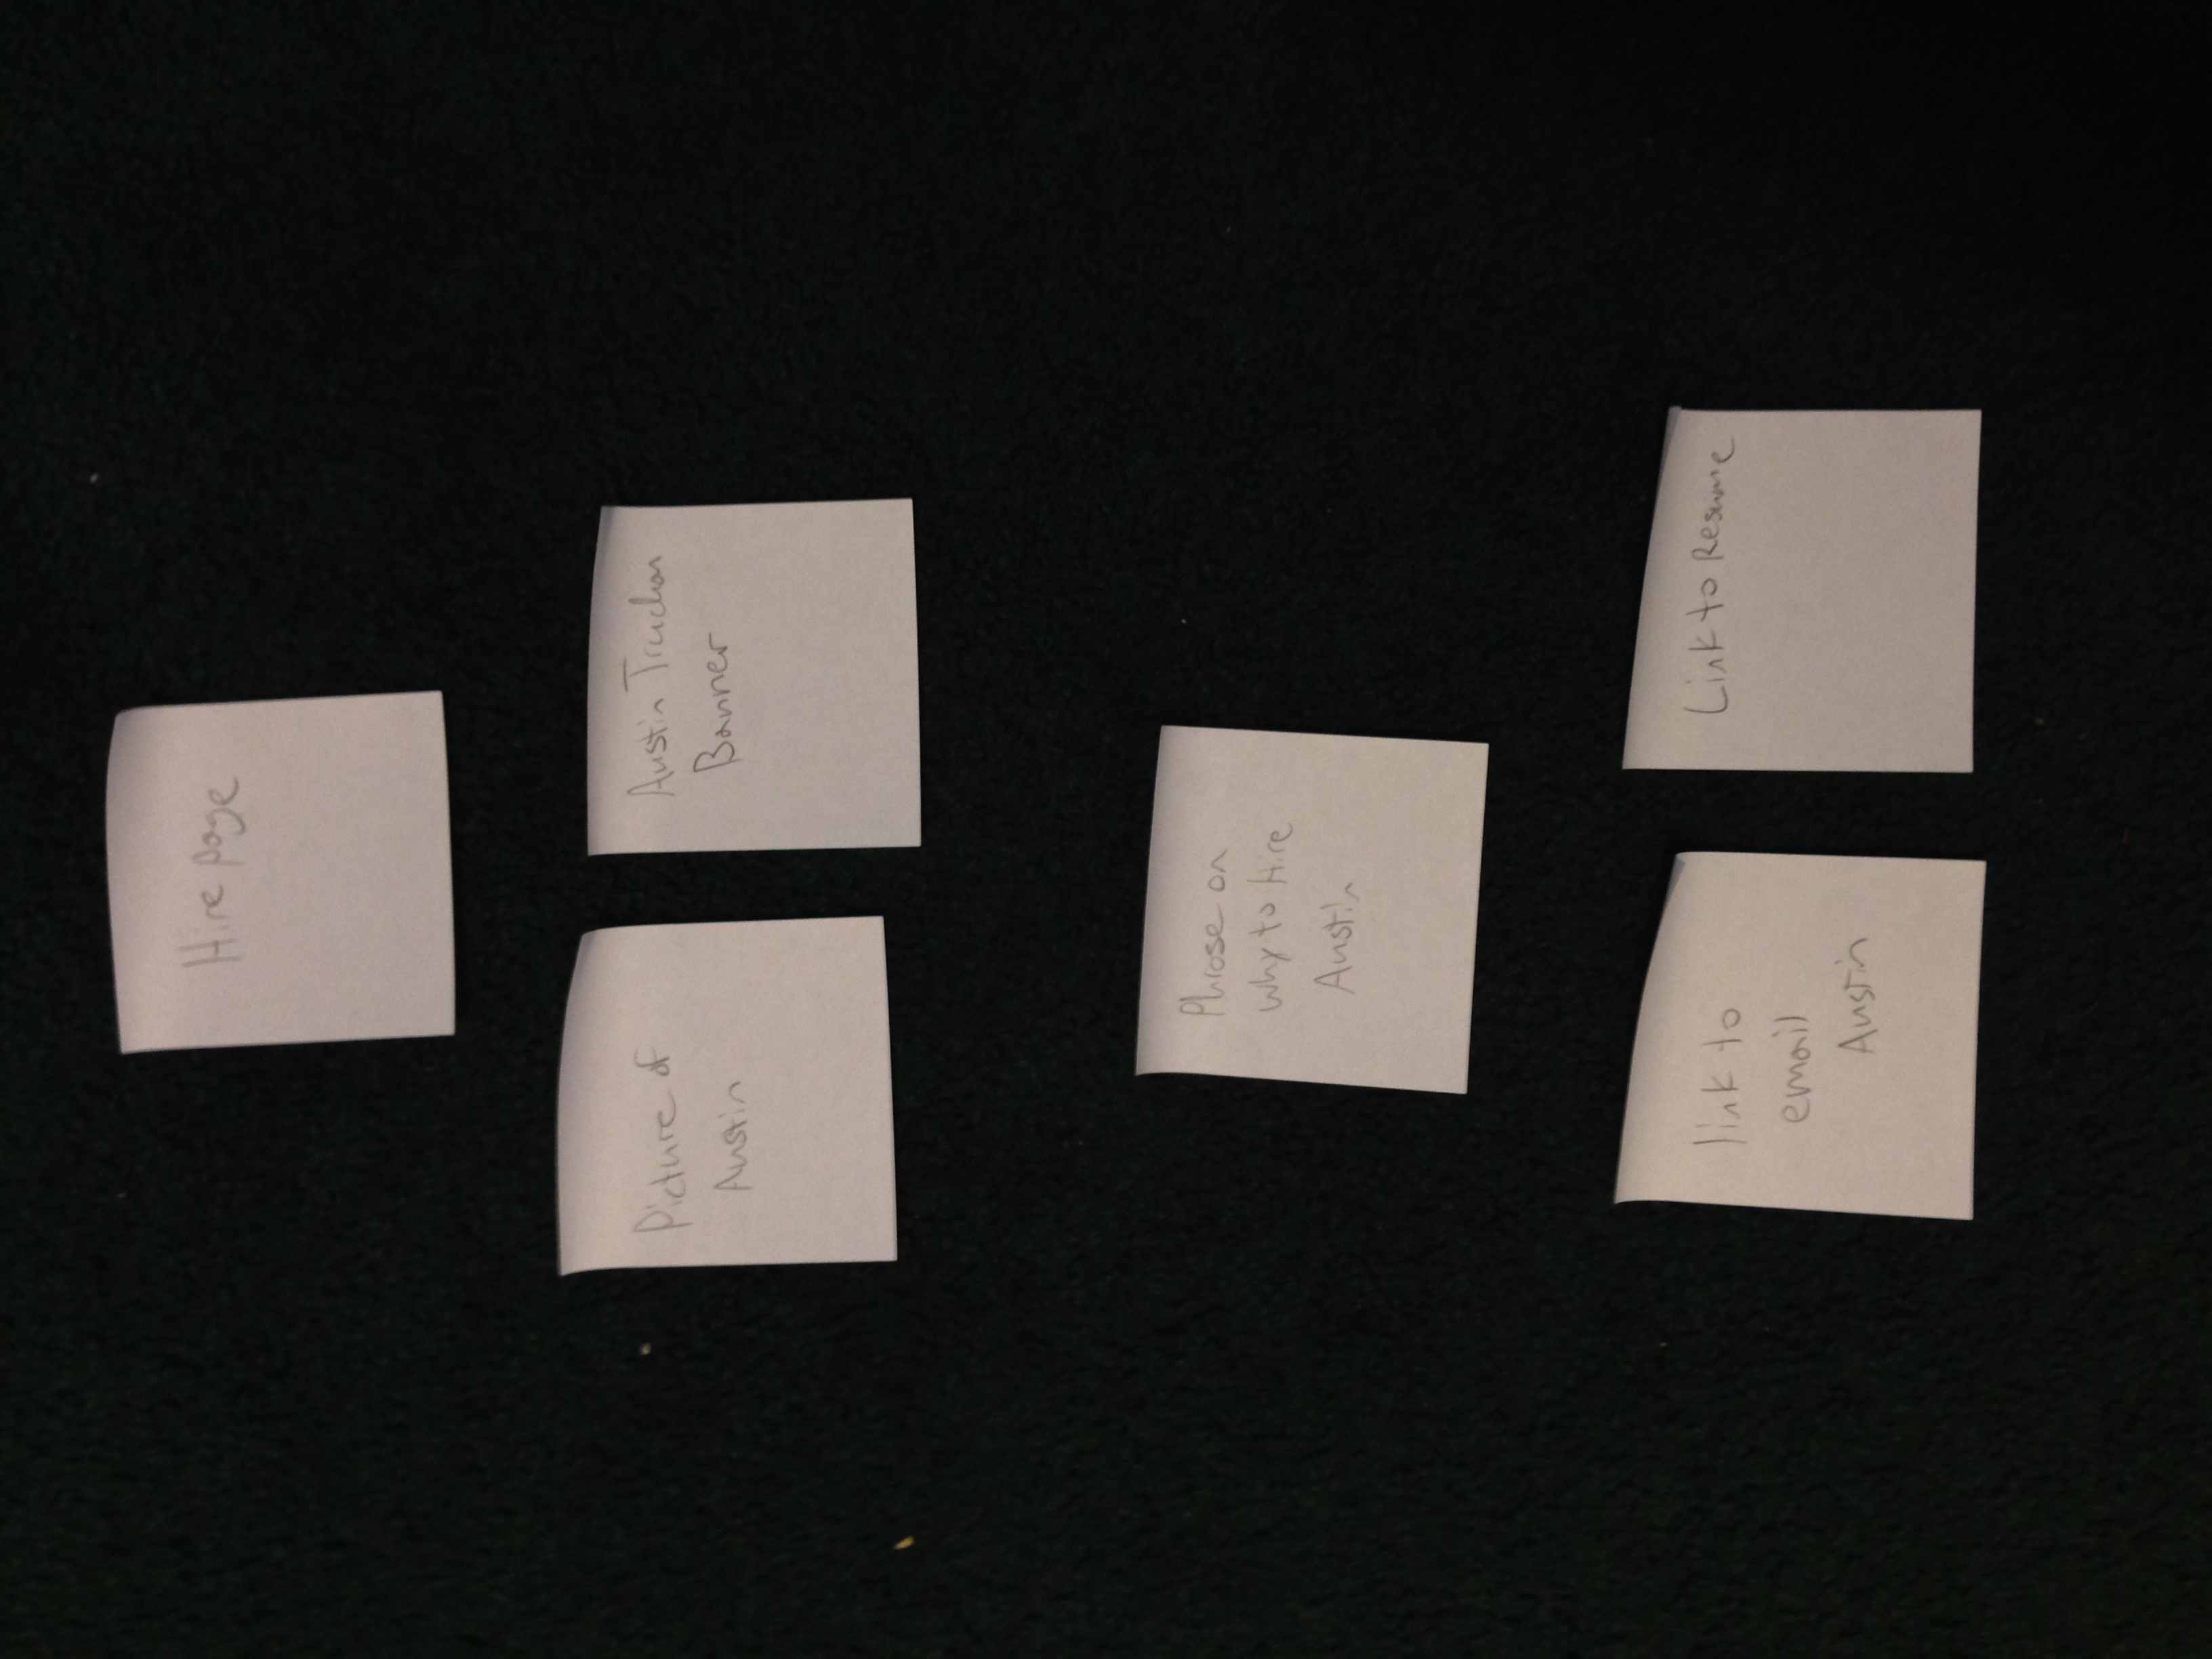 Hire page
Picture of
Austin
Austin
Banner
Phrase on
why to Hire
Austin
link to
email
Austin
Link to Resume